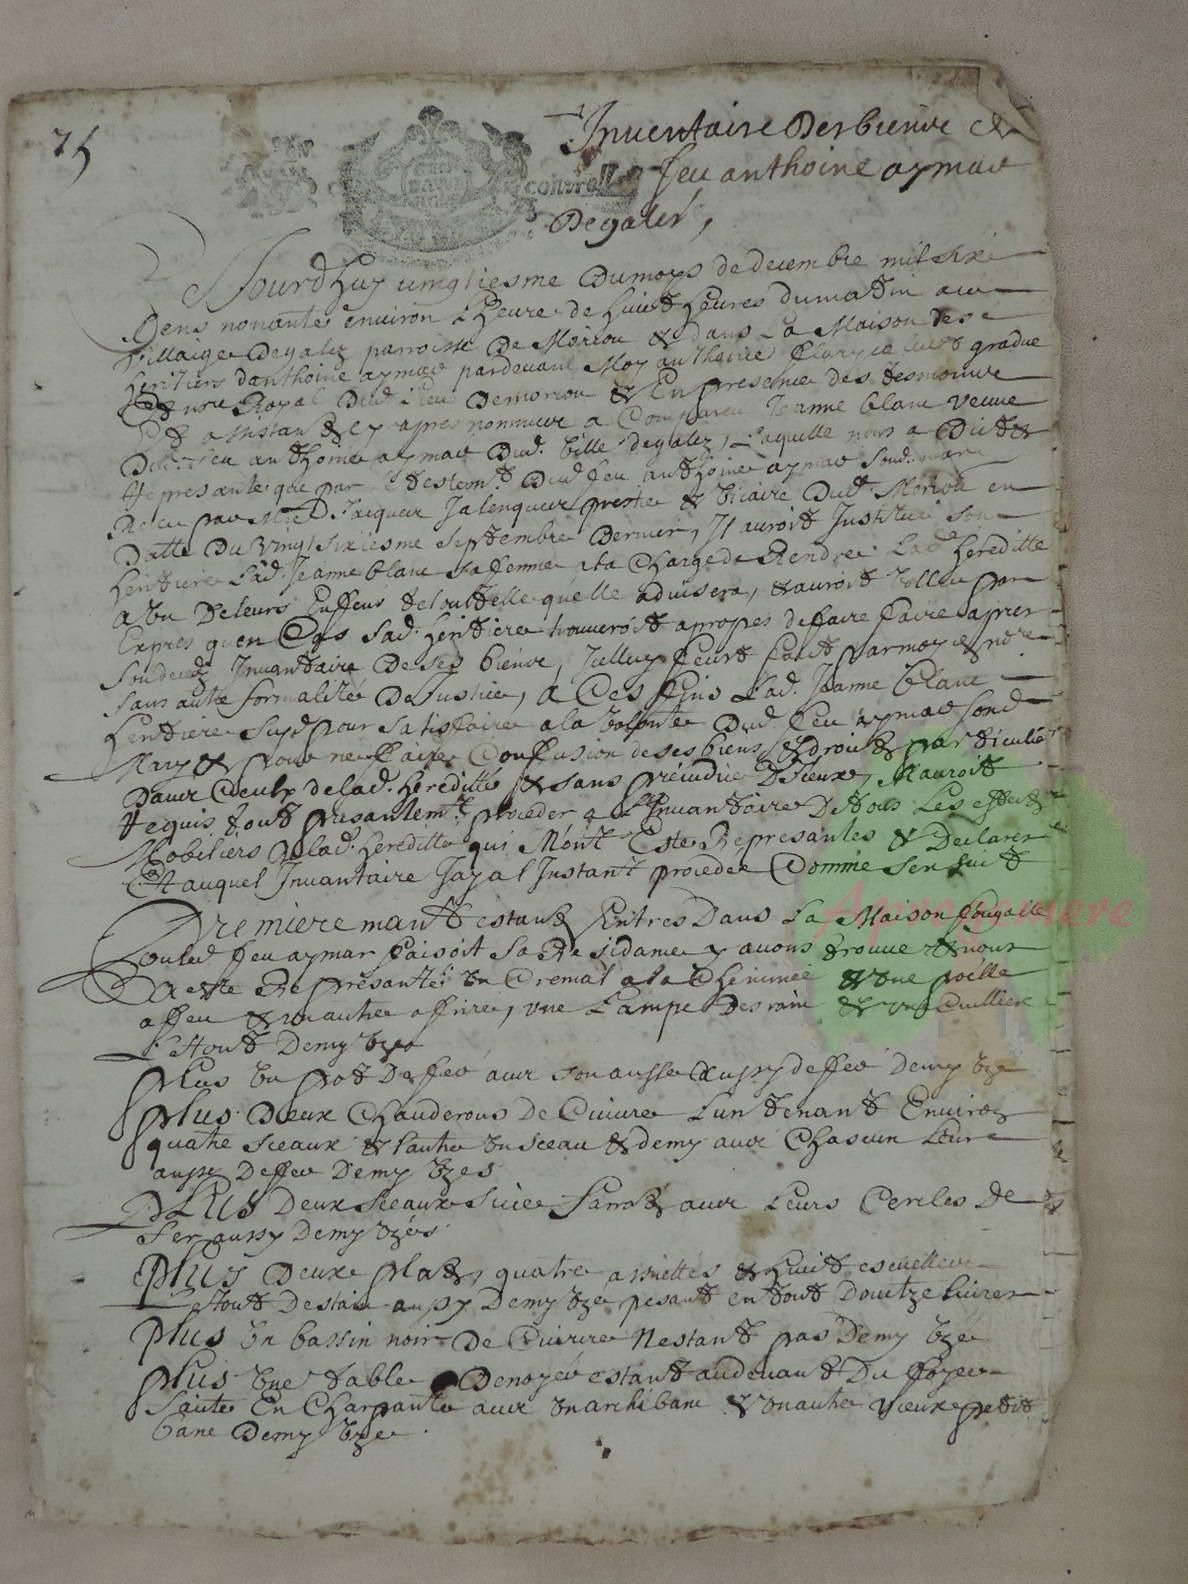 75
Inventaire des biens de
feu anthoine aymar
Degalez,
controlle
Jourdhuy vingtiesme Dumoys de decembre mil six
Cens nonante environ L'heure de huict heures dumatin au
villaige Degalez parroisse De Moriou & dans La Maison des
heritiers danthoine aymar pardevant Moy gradue
nore Royal Dud. Lieu Demoriou & En presence des tesmoings
apres nommes a Comparu Jeanne blanc veuve
Dud. feu anthoine aymar Dud. ville degalez, Laquelle nous a Dit &
represante que par le testemt. Dud feu anthoine aymar Sond. mary
Receu par Mre Jacques Jalenques prestre & vicaire Dud. Moriou en
Datte Du vingt sixiesme septembre Dernier, Il auroit Institue son
heritiere Lad. Jeanne blanc sa femme ala Charge de Rendre Lad. heredite
a Un De leurs Enffens tel ou telle quelle advisera, & auroit vollu par
Expres qu en Cas Sad. heritiere trouveroit apropos de faire faire apres
Son deces Inventaire De ses biens, Icelluy feut faict par moy d. nore
Sans autre formalité De Justice, A Ces fins Lad. Jeanne blanc
heritiere Susd pour satisfaire ala volonte Dud feu aymar sond
Mary & pour ne faire Conffusion de ses biens & droits particuliers
Davec Ceulx de lad. heredité & sans préjudice D'Iceux, Mauroit
requis tout presantemt. proceder a L'Inventaire De tous Les effects
Mobiliers De lad. heredite qui M'ont Este Represantes & Declares
Et auquel Inventaire Jay a l Instant procede Comme sen suit
Premieremant estant Entres Dans La Maison fougalle
ou led feu aymar faisoit sa Residance y avons trouve & nous
a este Represanté un Cremal ala Cheminee & une poille
a feu & un autre a frire, une Lampe Desrain & une Cuilliere
Le tout Demy Uze
Plus Un pot De fer avec son ausse aussy de fer Demy Uze
Plus Deux Chauderons De Cuivre Lun tenant Environ
quatre sceaux & lautre un sceau & demy avec Chascun Leur
ausse De fer Demy Uzes
Plus Deux sceaux farrat avec Leurs Cercles De
fer aussy Demy Uzés
Plus Deux plats, quatre assiettes & huict escuelles
Le tout Destain aussy Demy Uze pesant en tout Doutze livres
Plus Un bassin noir De Cuivre Nestant pas Demy Uzé
Plus Une table De noyer estant audevant Du foyer
faite En Charpante avec un archibanc & un autre vieux petit
banc Demy Uze.
Aprogemere